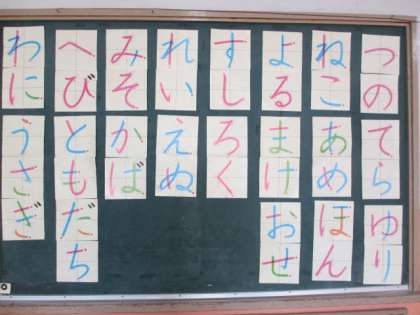 つの
てら
ゆり
ねこ
あめ
ほん
よる
まけ
おせ
すし
ろく
れい
えぬ
みそ
かば
へび
ともだち
わに
うさぎ